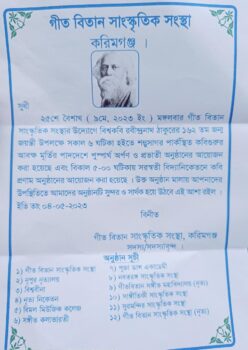 গীত বিতান সাংস্কৃতিক সংস্থা
করিমগঞ্জ ।
সুধী
২৫শে বৈশাখ ( ৯মে, ২০২৩ ইং ) মঙ্গলবার গীত বিতান
সাংস্কৃতিক সংস্থার উদ্যোগে বিশ্বকবি রবীন্দ্রনাথ ঠাকুরের ১৬২ তম জন্ম
জয়ন্তী উপলক্ষে সকাল ৬ ঘটিকা হইতে শম্ভুসাগর পার্কস্থিত কবিগুরুর
আবক্ষ মূর্তির পাদদেশে পুষ্পার্ঘ অর্পণ ও প্রভাতী অনুষ্ঠানের আয়োজন
করা হয়েছে এবং বিকাল ৫-০০ ঘটিকায় সরস্বতী বিদ্যানিকেতনে কবি
প্রণাম অনুষ্ঠানের আয়োজন করা হয়েছে । উক্ত অনুষ্ঠান মালায় আপনাদের
উপস্থিতিতে আমাদের অনুষ্ঠানটি সুন্দর ও সার্থক হয়ে উঠবে এই আশা রইল ।
ইতি তাং ০৪-০৫-২০২৩
বিনীত
গীত বিতান সাংস্কৃতিক সংস্থা, করিমগঞ্জ
সদস্য/সদস্যাবৃন্দ ।
অনুষ্ঠান সূচী
১) গীত বিতান সাংস্কৃতিক সংস্থা
২) নূপুর নৃত্যালয়
৩) বিশ্ববীনা
৪) নৃত্য নিকেতন
৫) বিমল মিউজিক কলেজ
৬) সঙ্গীত কলাভারতী
৭) পূজা ডান্স একাডেমী
৮) নবতরঙ্গ সাংস্কৃতিক সংস্থা
৯) গীতবিতান সঙ্গীত মহাবিদ্যালয় (নৃত্য)
১০) সাংস্কৃতিক সংস্থা
১১) সুরমন্দির সাংস্কৃতিক সংস্থা
১২) গীত বিতান সাংস্কৃতিক সংস্থা (নৃত্য)